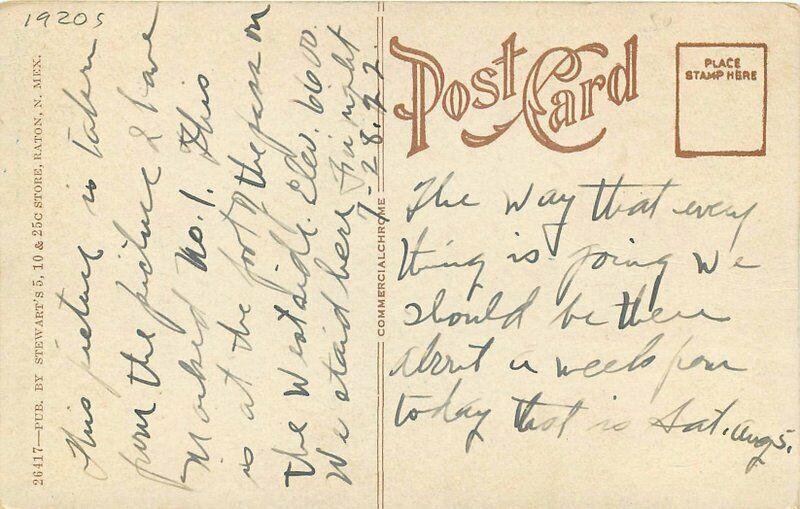 1920s
26417—PUB. BY STEWART'S 5, 10 & 25C STORE, RATON, N. MEX.
This picture is taken
from the picture I have
Marked no. 1. This
is at the foot of the pass on
the West side. Elev. 6600.
We staid here Fri night
7-28-22.
COMMERCIALCHROME
POST CARD
PLACE
STAMP HERE
The way that every
thing is going we
should be there
about a week from
today that is Sat. Aug 5.